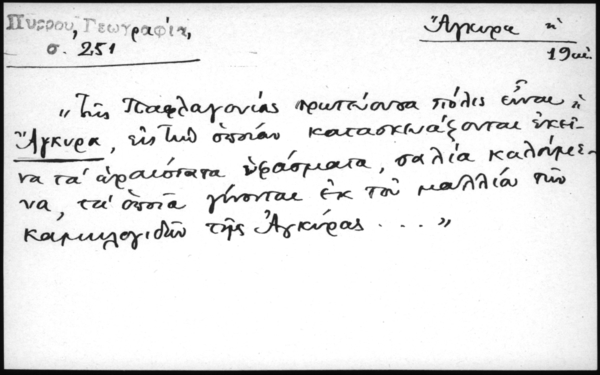 Πύρρου, Γεωγραφία,
σ. 251
Ἄγκυρα ἡ
19 αἰ.
„Τῆς Παφλαγονίας πρωτεύουσα πόλις εἶναι ἡ
Ἄγκυρα, εἰς τὴν ὁποίαν κατασκευάζονται ἐκεῖ-
να τὰ ὡραιότατα ὑφάσματα, σαλία καλούμε-
να, τὰ ὁποῖα γίνονται ἐκ τοῦ μαλλία τῶν
καμηλογιδῶν τῆς Ἀγκύρας . . . »